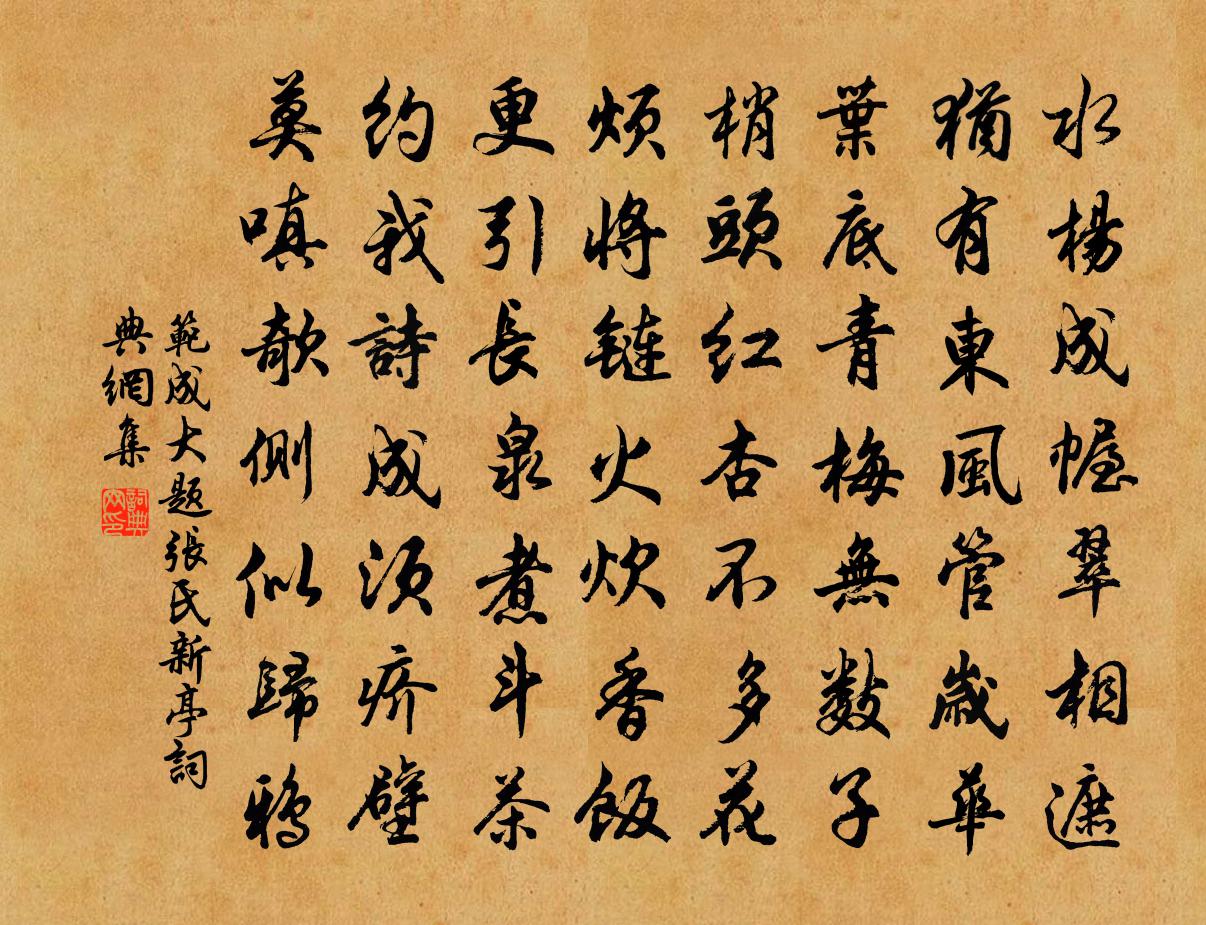 水楊成幄翠相遮
猶有東風管歲華
葉底青梅無數子
梢頭紅杏不多花
煩將鏈火炊香飯
更引長泉煮斗茶
約我詩成須疥壁
莫嗔欹側似歸鴉
範成大題張氏新亭詞
典網集
詞典網印